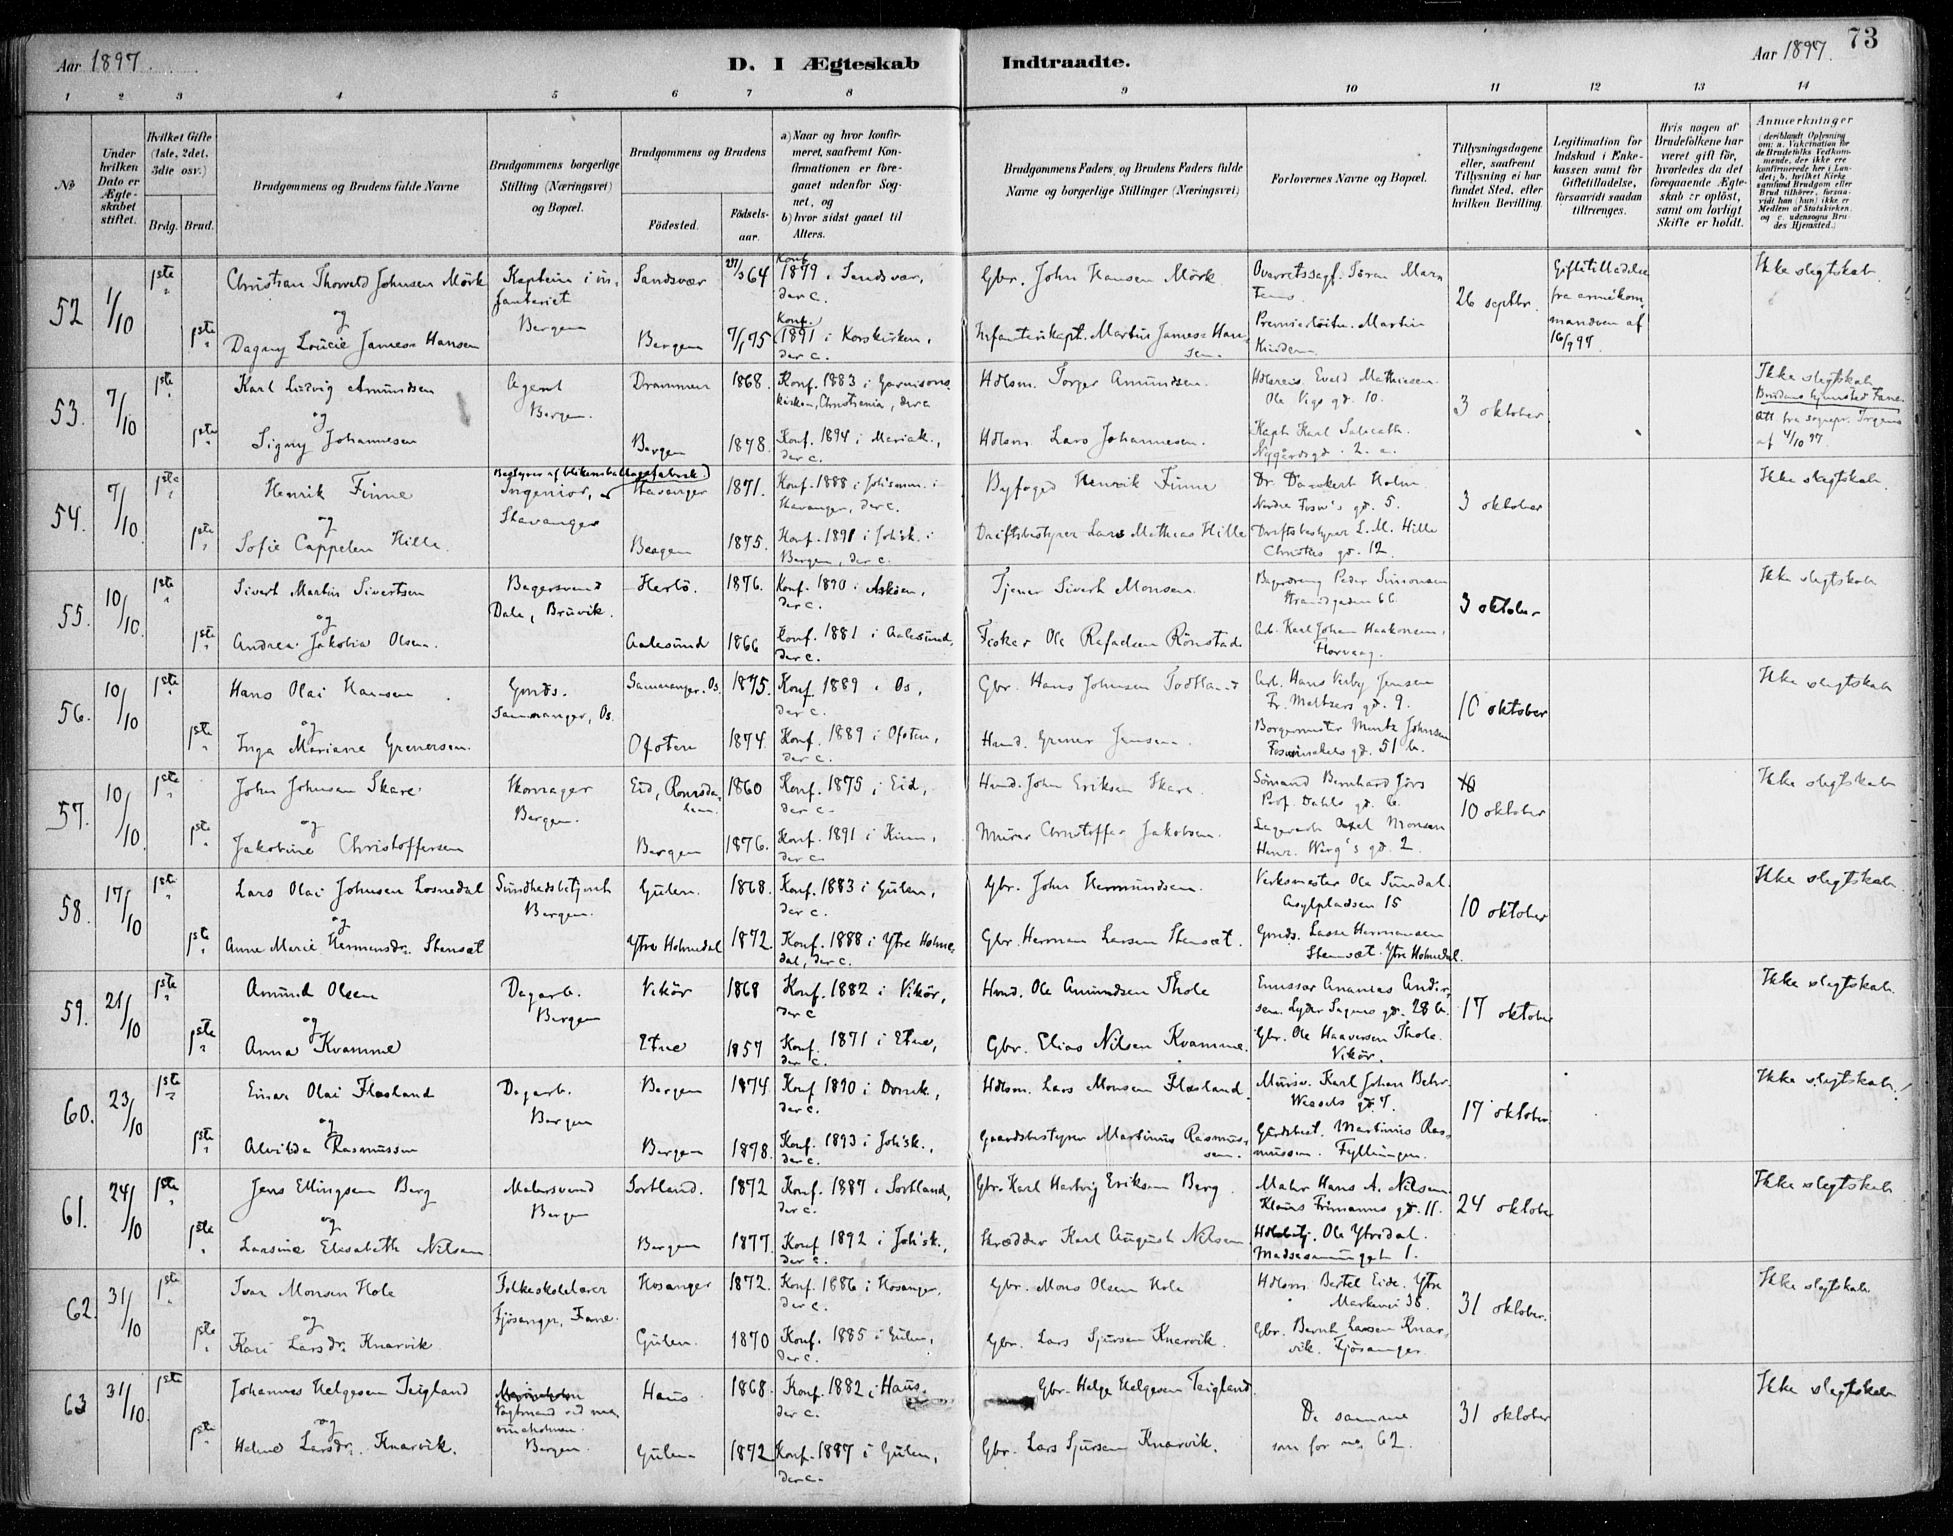 Aar 1897.
D. I Ægteskab Indtraadte.
Aar 1897. 73
1 2 3 4 5 6 7 8 9 10 11 12 13 14
No
Under hvilken Dato er Ægteskabet stiftet.
Hvilket Gifte (1ste, 2det, 3die osv.)
Brdg. Brud.
Brudgommens og Brudens fulde Navne
Brudgommens borgerlige Stilling (Næringsvei) og Bopæl.
Brudgommens og Brudens
Fødested. Fødselsaar.
a) Naar og hvor konfirmeret, saafremt Konfirmationen er foregaaet udenfor Sognet, og
b) hvor sidst gaaet til Alters.
Brudgommens Faders, og Brudens Faders fulde Navne og borgerlige Stillinger (Næringsvei)
Forlovernes Navne og Bopæl.
Tillysningsdagene eller, saafremt Tillysning ei har fundet Sted, efter hvilken Bevilling.
Legitimation for Indskud i Enkekassen samt for Giftetilladelse, forsaavidt saadan tiltrænges.
Hvis nogen af Brudefolkene har været gift før, hvorledes da det foregaaende Ægteskab er opløst, samt om lovligt Skifte er holdt.
Anmærkninger
52 1/10 1ste Christian Thorvald Johnsen Mörk Kaptein i infanteriet Bergen Sandsvær 27/3 64 Konf. 1879 i Sandsvær, der c. Gbr. John Hansen Mörk 26 septbr. Giftetilladelse fra armékommandoen af 16/9 97 Ikke slegtskab.
og
1ste Dagny Loucie James Hansen Bergen 7/1 75 Konf. 1891 i Korskirken, der c. Infanterikapt. Martin James Hansen. Premierløitn. Martin
53. 7/10 1ste Karl Ludvig Amundsen Agent Bergen. Drammen 1868. Konf. 1883 i Garnisonskirken, Christiania, der c Hdlsm. Torger Amundsen. Hdlsreis. Evald Mathiesen. Ole Vigs gd. 10. 3 oktober Ikke slegtskab Brudens hjemsted Fane. Att. fra sognepr. Irgens af 4/10 97.
og
1ste Signy Johannesen Bergen 1878. Konf. 1894 i Mariak., der c. Hdlsm. Lars Johannesen. Nygårdsgd. 2. a.
54. 7/10 1ste Henrik Finne Ingeniør, Stavanger Stavanger 1871. Konf. 1888 i Joh'senm. i Stavanger, der c. Byfoged Henrik Finne Dr. Danckert Holm 3 oktober Ikke slegtskab.
og
1ste Sofie Cappelen Hille. Bergen 1875. Konf. 1891 i Joh'sk. i Bergen, der c. Driftsbestyrer Lars Mathias Hille Driftsbestyrer L. M. Hille Christies gd. 12.
55. 10/10. 1ste Sivert Martin Sivertsen Bagersvend Dale, Bruvik. Herlö. 1876. Konf. 1890 i Asköen, der c. Tjener Sivert Monsen. Peder Simonsen Strandgaden 66. 3 oktober Ikke slegtskab
og
1ste Andrea Jakobia Olsen. Aalesund 1866 Konf. 1881 i Aalesund, der c. Fisker Ole Rafaelsen Rönstad. Arb. Karl Johan Haakonsen,
56. 10/10 1ste Hans Olai Hansen Gmds. Samnanger, Os. Samnanger. Os. 1875. Konf. 1889 i Os, der c. Gbr. Hans Johnsen Todtland Arb. Hans Jensen Fr. Meltzers gd. 9. 10 oktober Ikke slegtskab
og
1ste Inga Mariane Grenersen. Ofoten 1874. Konf. 1889 i Ofoten, der c. Hmd. Grener Jensen. Borgermester Johnsen 51 b.
57. 10/10 1ste John Johnsen Skare Skomager Bergen. Eid, Romsdalen. 1860 Konf. 1875 i Eid, der c. Hmd. John Eriksen Skare. Sömand Bernhard Prof. Dahls gd. 6. 10 oktober Ikke slegtskab
og
1ste Jakobine Christoffersen Bergen 1876. Konf. 1891 i Kinn, der c. Murer Christoffer Jakobsen. Axel Monsen Henr. Werg's gd. 2.
58. 17/10 1ste Lars Olai Johnsen Losnedal Sundhedsbetjent Bergen. Gulen. 1868. Konf. 1883 i Gulen, der c. Gbr. John Hermundsen. Verksmester Ole Sundal. Asylpladsen 15 10 oktober Ikke slegtskab.
og
1ste Anne Marie Hermansdr. Stensæt Ytre Holmedal 1872. Konf. 1888 i Ytre Holmedal, der c. Gbr. Herman Larsen Stensæt. Gmds. Lasse Hermansen Stensæt. Ytre Holmedal.
59. 21/10 1ste Amund Olsen Dagarb. Bergen Vikör 1868 Konf. 1882 i Vikör, der c Hmd. Ole Amundsen Thole Emissær Ananias Andersen. Lyder Sagens gd. 28 b. 17 oktober Ikke slegtskab.
og
1ste Anna Kvamme Etne 1857 Konf. 1871 i Etne, der c. Gbr. Elias Nilsen Kvamme. Gbr. Ole Haaversen Thole. Vikör.
60. 23/10 1ste Einar Olai Flasland Dagarb. Bergen Bergen 1874 Konf 1890 i Domk., der c. Hdlsm. Lars Monsen Flasland. Karl Johan Behr. Wessels gd. 7. 17 oktober Ikke slegtskab.
og
1ste Alvilda Rasmussen Bergen 1878. Konf. 1893 i Joh'sk., der c. Gaardsbestyrer Martinus Rasmussen. Gårdsbest. Martinus Rasmussen. Fyllingen.
61. 24/10 1ste Jens Ellingsen Berg Malersvend Bergen Sortland. 1872 Konf. 1887 i Sortland, der c. Gbr. Karl Hartvig Eriksen Berg. Maler Hans A. Nilsen. Klaus Frimanns gd. 11. 24 oktober Ikke slegtskab
og
1ste Larsine Elisabeth Nilsen Bergen 1877. Konf 1892 i Joh'sk., der c. Skrædder Karl August Nilsen. Ole Ytredal. 1.
62. 31/10 1ste Ivar Monsen Hole Folkeskolelærer Fjösanger, Fane. Hosanger 1872. Konf. 1886 i Hosanger, der c. Gbr. Mons Olsen Hole Hdlsm. Bertel Eide. Ytre Markevei 38. 31 oktober. Ikke slegtskab
og
1ste Kari Larsdr. Knarvik. Gulen. 1870 Konf. 1885 i Gulen, der c. Gbr. Lars Sjursen Knarvik. Gbr. Bernh Larsen Knarvik. Fjösanger.
63 31/10. 1ste Johannes Helgesen Teigland Vagtmand ved marineholmen. Bergen Haus. 1868. Konf. 1882 i Haus. der c. Gbr. Helge Helgesen Teigland. De samme som for no. 62. 31 oktober Ikke slegtskab
og
1ste Helene Larsdr. Knarvik. Gulen 1872 Konf. 1887 i Gulen, der c. Gbr. Lars Sjursen Knarvik.